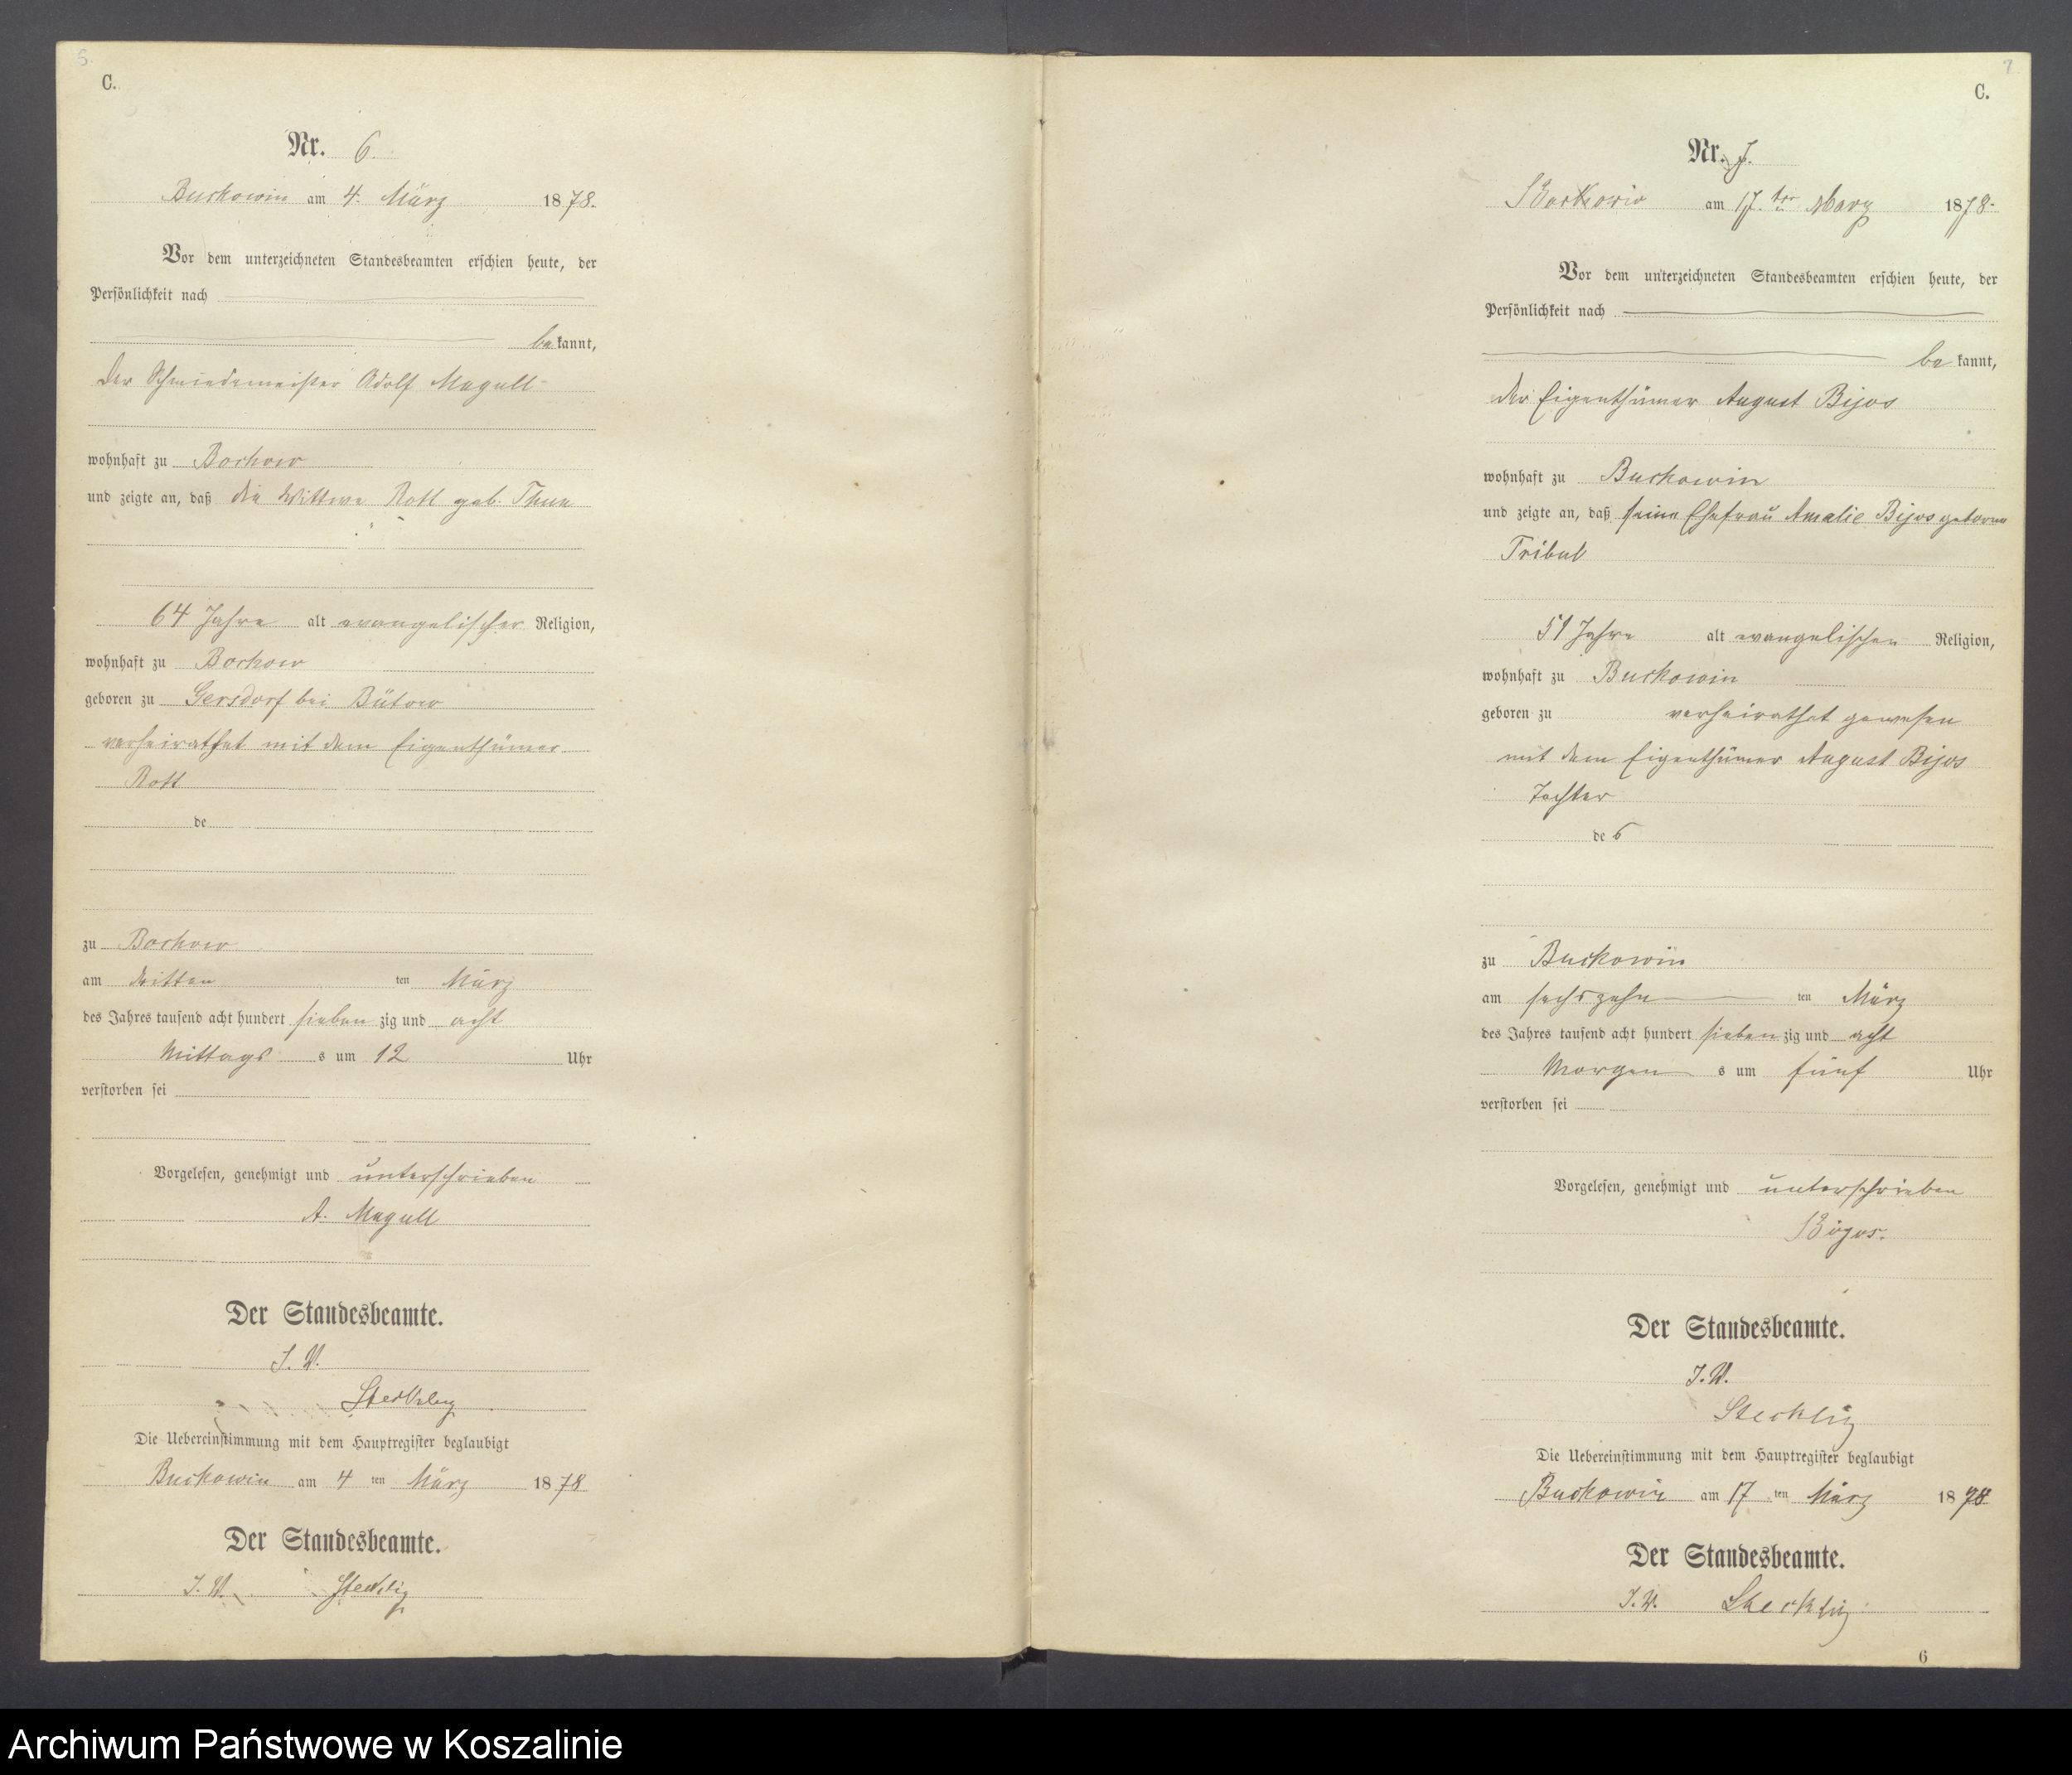 5.
C.
Nr. 6.
Buckowin am 4. März 1878.
Vor dem unterzeichneten Standesbeamten erschien heute, der
Persönlichkeit nach
bekannt,
der Schmiedemeister Adolf Magull
wohnhaft zu Bochow
und zeigte an, daß die Wittwe Rott geb. Thun
64 Jahre alt evangelischer Religion,
wohnhaft zu Bochow
geboren zu Gersdorf bei Bütow
verheirathet mit dem Eigenthümer
Rott
de
zu Bochow
am dritten ten März
des Jahres tausend acht hundert siebenzig und acht
Mittags s um 12 Uhr
verstorben sei
Vorgelesen, genehmigt und unterschrieben
A. Magull
Der Standesbeamte.
I. V.
Stecklig
Die Uebereinstimmung mit dem Hauptregister beglaubigt
Buckowin am 4 ten März 1878
Der Standesbeamte.
I. V. Stecklig
7
C.
Nr. 7.
am 17. ten März 1878.
Vor dem unterzeichneten Standesbeamten erschien heute, der
Persönlichkeit nach
bekannt,
der Eigenthümer August Bijos
wohnhaft zu Buckowin
und zeigte an, daß seine Ehefrau Amalie Bijos geborene
Tribul
51 Jahre alt evangelischen Religion,
wohnhaft zu Buckowin
geboren zu verheirathet gewesen
mit dem Eigenthümer August Bijos
Tochter
des
zu Buckowin
am sechszehn ten März
des Jahres tausend acht hundert siebenzig und acht
Morgens um fünf Uhr
verstorben sei
Vorgelesen, genehmigt und unterschrieben
Der Standesbeamte.
I. V.
Stecklig
Die Uebereinstimmung mit dem Hauptregister beglaubigt
Buckowin am 17 ten März 1878
Der Standesbeamte.
I. V. Stecklig
6
Archiwum Państwowe w Koszalinie